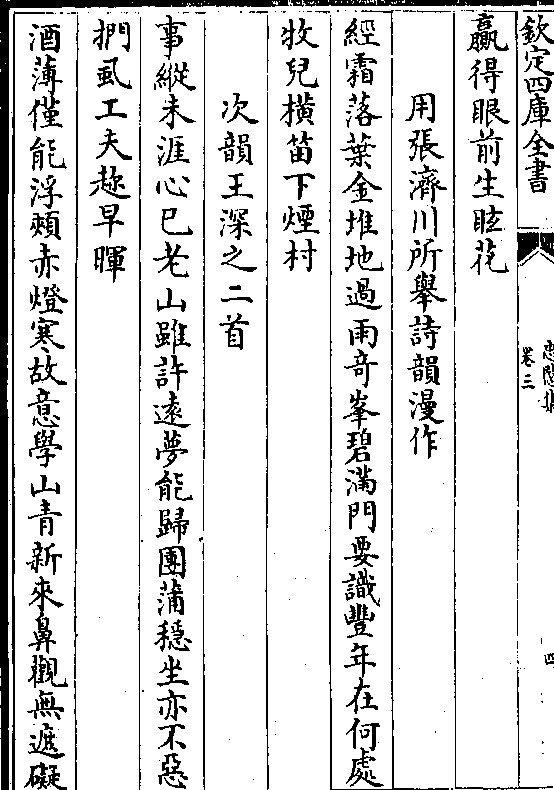 欽定四庫全書
卷三
四
贏得眼前生眩花
用張濟川所舉詩韻漫作
經霜落葉金堆地過雨奇峯碧滿門要識豐年在何處
牧兒横笛下煙村
次韻王深之二首
事縱未涯心已老山雖許遠夢能歸團蒲穏坐亦不惡
捫虱工夫趂早暉
酒薄僅能浮頰赤燈寒故意學山青新來鼻觀無遮礙